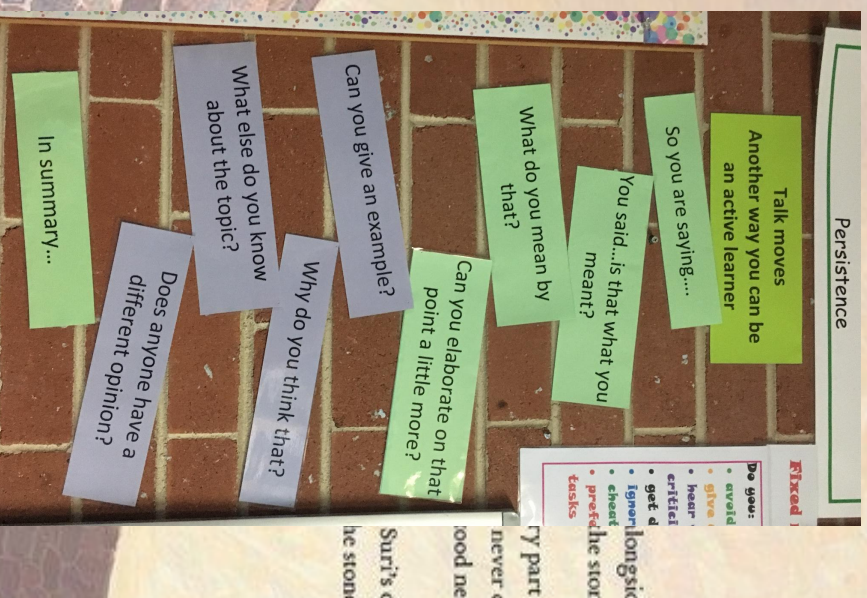 Persistence
Talk moves
Another way you can be
an active learner
So you are saying....
You said...is that what you
meant?
What do you mean by
that?
Can you elaborate on that
point a little more?
Can you give an example?
Why do you think that?
What else do you know
about the topic?
Does anyone have a
different opinion?
In summary...
Fixed
Do you:
• avoid
• give
• hear
critici
• get d
• ignor
• cheat
• prefe
tasks
longsid
he stor
ry part
never
ood ne
Suri's
he stone